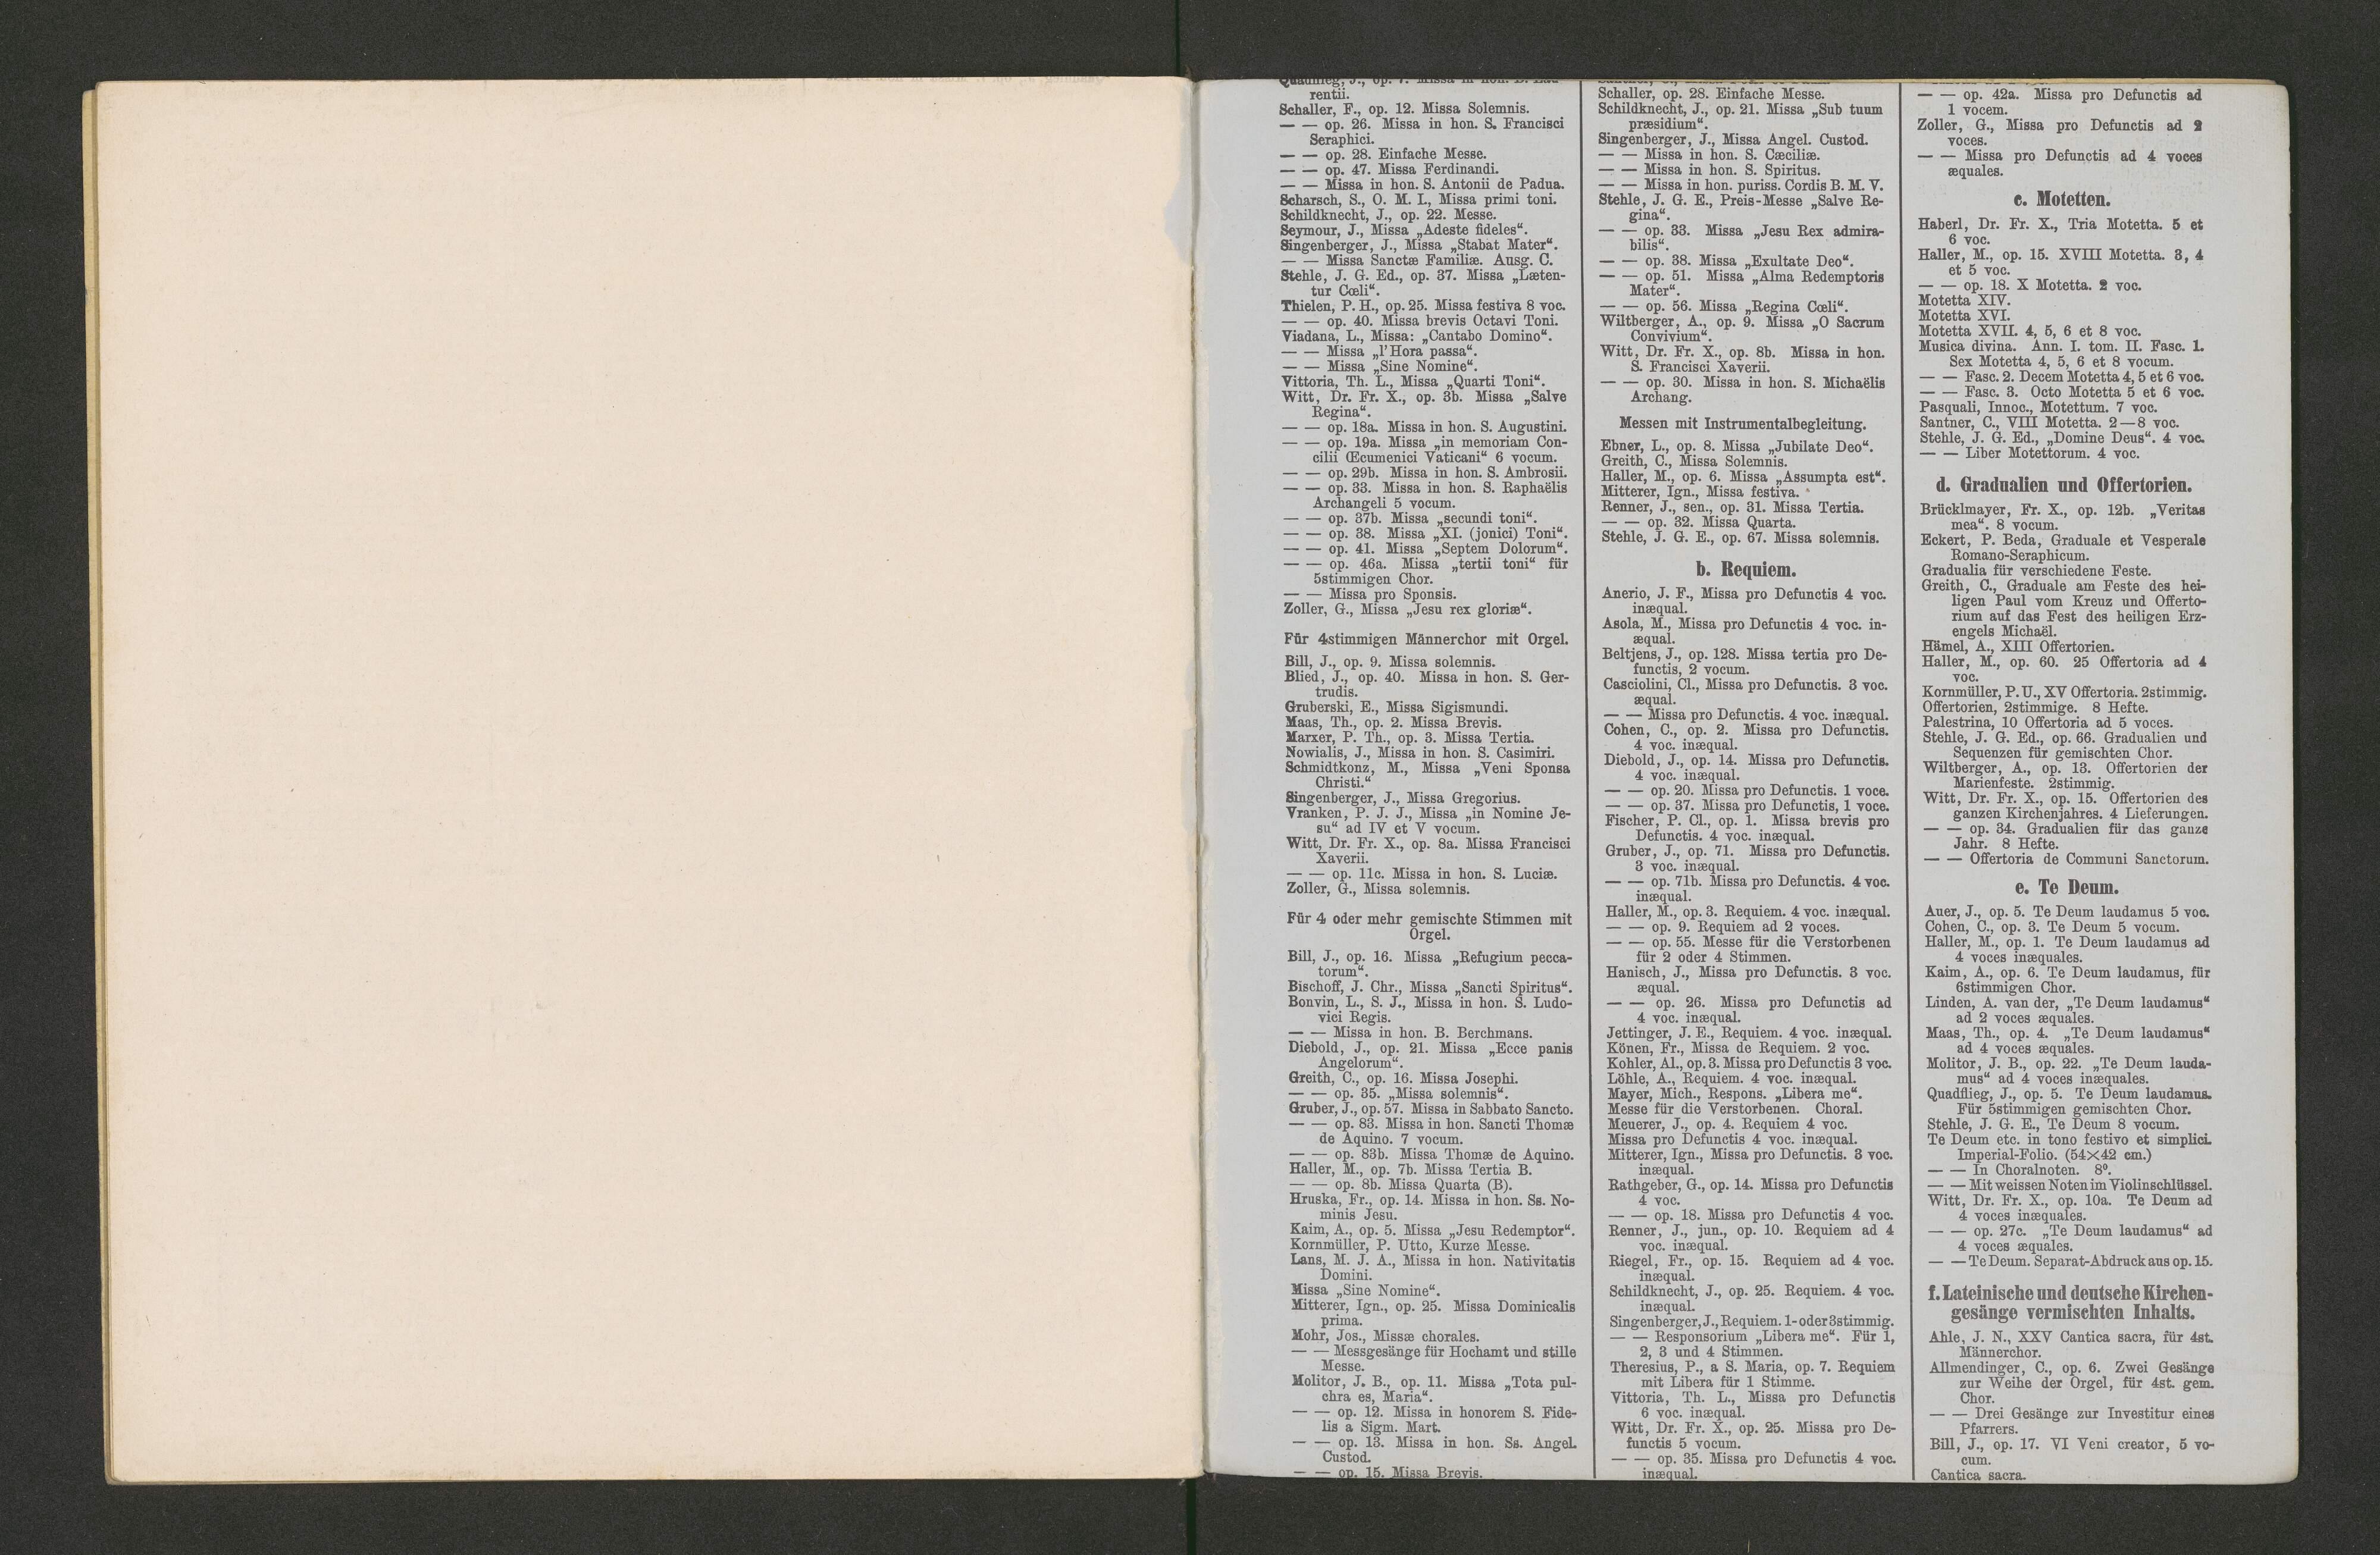 Quadflieg, J., op. 7. Missa in hon. B. Lau-
rentii.
Schaller, F., op. 12. Missa Solemnis.
— — op. 26. Missa in hon. S. Francisci
Seraphici.
— — op. 28. Einfache Messe.
— — op. 47. Missa Ferdinandi.
— — Missa in hon. S. Antonii de Padua.
Scharsch, S., O. M. I., Missa primi toni.
Schildknecht, J., op. 22. Messe.
Seymour, J., Missa „Adeste fideles“.
Singenberger, J., Missa „Stabat Mater“.
— — Missa Sanctæ Familiæ. Ausg. C.
Stehle, J. G. Ed., op. 37. Missa „Læten-
tur Cœli“.
Thielen, P. H., op. 25. Missa festiva 8 voc.
— — op. 40. Missa brevis Octavi Toni.
Viadana, L., Missa: „Cantabo Domino“.
— — Missa „l'Hora passa“.
— — Missa „Sine Nomine“.
Vittoria, Th. L., Missa „Quarti Toni“.
Witt, Dr. Fr. X., op. 3b. Missa „Salve
Regina“.
— — op. 18a. Missa in hon. S. Augustini.
— — op. 19a. Missa „in memoriam Con-
cilii Œcumenici Vaticani“ 6 vocum.
— — op. 29b. Missa in hon. S. Ambrosii.
— — op. 33. Missa in hon. S. Raphaëlis
Archangeli 5 vocum.
— — op. 37b. Missa „secundi toni“.
— — op. 38. Missa „XI. (jonici) Toni“.
— — op. 41. Missa „Septem Dolorum“.
— — op. 46a. Missa „tertii toni“ für
5stimmigen Chor.
— — Missa pro Sponsis.
Zoller, G., Missa „Jesu rex gloriæ“.
Für 4stimmigen Männerchor mit Orgel.
Bill, J., op. 9. Missa solemnis.
Blied, J., op. 40. Missa in hon. S. Ger-
trudis.
Gruberski, E., Missa Sigismundi.
Maas, Th., op. 2. Missa Brevis.
Marxer, P. Th., op. 3. Missa Tertia.
Nowialis, J., Missa in hon. S. Casimiri.
Schmidtkonz, M., Missa „Veni Sponsa
Christi.“
Singenberger, J., Missa Gregorius.
Vranken, P. J. J., Missa „in Nomine Je-
su“ ad IV et V vocum.
Witt, Dr. Fr. X., op. 8a. Missa Francisci
Xaverii.
— — op. 11c. Missa in hon. S. Luciæ.
Zoller, G., Missa solemnis.
Für 4 oder mehr gemischte Stimmen mit
Orgel.
Bill, J., op. 16. Missa „Refugium pecca-
torum“.
Bischoff, J. Chr., Missa „Sancti Spiritus“.
Bonvin, L., S. J., Missa in hon. S. Ludo-
vici Regis.
— — Missa in hon. B. Berchmans.
Diebold, J., op. 21. Missa „Ecce panis
Angelorum“.
Greith, C., op. 16. Missa Josephi.
— — op. 35. „Missa solemnis“.
Gruber, J., op. 57. Missa in Sabbato Sancto.
— — op. 83. Missa in hon. Sancti Thomæ
de Aquino. 7 vocum.
— — op. 83b. Missa Thomæ de Aquino.
Haller, M., op. 7b. Missa Tertia B.
— — op. 8b. Missa Quarta (B).
Hruska, Fr., op. 14. Missa in hon. Ss. No-
minis Jesu.
Kaim, A., op. 5. Missa „Jesu Redemptor“.
Kornmüller, P. Utto, Kurze Messe.
Lans, M. J. A., Missa in hon. Nativitatis
Domini.
Missa „Sine Nomine“.
Mitterer, Ign., op. 25. Missa Dominicalis
prima.
Mohr, Jos., Missæ chorales.
— — Messgesänge für Hochamt und stille
Messe.
Molitor, J. B., op. 11. Missa „Tota pul-
chra es, Maria“.
— — op. 12. Missa in honorem S. Fide-
lis a Sigm. Mart.
— — op. 13. Missa in hon. Ss. Angel.
Custod.
— — op. 15. Missa Brevis.
Schaller, op. 28. Einfache Messe.
Schildknecht, J., op. 21. Missa „Sub tuum
præsidium“.
Singenberger, J., Missa Angel. Custod.
— — Missa in hon. S. Cæciliæ.
— — Missa in hon. S. Spiritus.
— — Missa in hon. puriss. Cordis B. M. V.
Stehle, J. G. E., Preis-Messe „Salve Re-
gina“.
— — op. 33. Missa „Jesu Rex admira-
bilis“.
— — op. 38. Missa „Exultate Deo“.
— — op. 51. Missa „Alma Redemptoris
Mater“.
— — op. 56. Missa „Regina Cœli“.
Wiltberger, A., op. 9. Missa „O Sacrum
Convivium“.
Witt, Dr. Fr. X., op. 8b. Missa in hon.
S. Francisci Xaverii.
— — op. 30. Missa in hon. S. Michaëlis
Archang.
Messen mit Instrumentalbegleitung.
Ebner, L., op. 8. Missa „Jubilate Deo“.
Greith, C., Missa Solemnis.
Haller, M., op. 6. Missa „Assumpta est“.
Mitterer, Ign., Missa festiva.
Renner, J., sen., op. 31. Missa Tertia.
— — op. 32. Missa Quarta.
Stehle, J. G. E., op. 67. Missa solemnis.
b. Requiem.
Anerio, J. F., Missa pro Defunctis 4 voc.
inæqual.
Asola, M., Missa pro Defunctis 4 voc. in-
æqual.
Beltjens, J., op. 128. Missa tertia pro De-
functis, 2 vocum.
Casciolini, Cl., Missa pro Defunctis. 3 voc.
æqual.
— — Missa pro Defunctis. 4 voc. inæqual.
Cohen, C., op. 2. Missa pro Defunctis.
4 voc. inæqual.
Diebold, J., op. 14. Missa pro Defunctis.
4 voc. inæqual.
— — op. 20. Missa pro Defunctis. 1 voce.
— — op. 37. Missa pro Defunctis, 1 voce.
Fischer, P. Cl., op. 1. Missa brevis pro
Defunctis. 4 voc. inæqual.
Gruber, J., op. 71. Missa pro Defunctis.
3 voc. inæqual.
— — op. 71b. Missa pro Defunctis. 4 voc.
inæqual.
Haller, M., op. 3. Requiem. 4 voc. inæqual.
— — op. 9. Requiem ad 2 voces.
— — op. 55. Messe für die Verstorbenen
für 2 oder 4 Stimmen.
Hanisch, J., Missa pro Defunctis. 3 voc.
æqual.
— — op. 26. Missa pro Defunctis ad
4 voc. inæqual.
Jettinger, J. E., Requiem. 4 voc. inæqual.
Könen, Fr., Missa de Requiem. 2 voc.
Kohler, Al., op. 3. Missa pro Defunctis 3 voc.
Löhle, A., Requiem. 4 voc. inæqual.
Mayer, Mich., Respons. „Libera me“.
Messe für die Verstorbenen. Choral.
Meuerer, J., op. 4. Requiem 4 voc.
Missa pro Defunctis 4 voc. inæqual.
Mitterer, Ign., Missa pro Defunctis. 3 voc.
inæqual.
Rathgeber, G., op. 14. Missa pro Defunctis
4 voc.
— — op. 18. Missa pro Defunctis 4 voc.
Renner, J., jun., op. 10. Requiem ad 4
voc. inæqual.
Riegel, Fr., op. 15. Requiem ad 4 voc.
inæqual.
Schildknecht, J., op. 25. Requiem. 4 voc.
inæqual.
Singenberger, J., Requiem. 1- oder 3stimmig.
— — Responsorium „Libera me“. Für 1,
2, 3 und 4 Stimmen.
Theresius, P., a S. Maria, op. 7. Requiem
mit Libera für 1 Stimme.
Vittoria, Th. L., Missa pro Defunctis
6 voc. inæqual.
Witt, Dr. Fr. X., op. 25. Missa pro De-
functis 5 vocum.
— — op. 35. Missa pro Defunctis 4 voc.
inæqual.
— — op. 42a. Missa pro Defunctis ad
1 vocem.
Zoller, G., Missa pro Defunctis ad 2
voces.
— — Missa pro Defunctis ad 4 voces
æquales.
c. Motetten.
Haberl, Dr. Fr. X., Tria Motetta. 5 et
6 voc.
Haller, M., op. 15. XVIII Motetta. 3, 4
et 5 voc.
— — op. 18. X Motetta. 2 voc.
Motetta XIV.
Motetta XVI.
Motetta XVII. 4, 5, 6 et 8 voc.
Musica divina. Ann. I. tom. II. Fasc. 1.
Sex Motetta 4, 5, 6 et 8 vocum.
— — Fasc. 2. Decem Motetta 4, 5 et 6 voc.
— — Fasc. 3. Octo Motetta 5 et 6 voc.
Pasquali, Innoc., Motettum. 7 voc.
Santner, C., VIII Motetta. 2—8 voc.
Stehle, J. G. Ed., „Domine Deus“. 4 voc.
— — Liber Motettorum. 4 voc.
d. Gradualien und Offertorien.
Brücklmayer, Fr. X., op. 12b. „Veritas
mea“. 8 vocum.
Eckert, P. Beda, Graduale et Vesperale
Romano-Seraphicum.
Gradualia für verschiedene Feste.
Greith, C., Graduale am Feste des hei-
ligen Paul vom Kreuz und Offerto-
rium auf das Fest des heiligen Erz-
engels Michaël.
Hämel, A., XIII Offertorien.
Haller, M., op. 60. 25 Offertoria ad 4
voc.
Kornmüller, P. U., XV Offertoria. 2stimmig.
Offertorien, 2stimmige. 8 Hefte.
Palestrina, 10 Offertoria ad 5 voces.
Stehle, J. G. Ed., op. 66. Gradualien und
Sequenzen für gemischten Chor.
Wiltberger, A., op. 13. Offertorien der
Marienfeste. 2stimmig.
Witt, Dr. Fr. X., op. 15. Offertorien des
ganzen Kirchenjahres. 4 Lieferungen.
— — op. 34. Gradualien für das ganze
Jahr. 8 Hefte.
— — Offertoria de Communi Sanctorum.
e. Te Deum.
Auer, J., op. 5. Te Deum laudamus 5 voc.
Cohen, C., op. 3. Te Deum 5 vocum.
Haller, M., op. 1. Te Deum laudamus ad
4 voces inæquales.
Kaim, A., op. 6. Te Deum laudamus, für
6stimmigen Chor.
Linden, A. van der, „Te Deum laudamus“
ad 2 voces æquales.
Maas, Th., op. 4. „Te Deum laudamus“
ad 4 voces æquales.
Molitor, J. B., op. 22. „Te Deum lauda-
mus“ ad 4 voces inæquales.
Quadflieg, J., op. 5. Te Deum laudamus.
Für 5stimmigen gemischten Chor.
Stehle, J. G. E., Te Deum 8 vocum.
Te Deum etc. in tono festivo et simplici.
Imperial-Folio. (54×42 cm.)
— — In Choralnoten. 8º.
— — Mit weissen Noten im Violinschlüssel.
Witt, Dr. Fr. X., op. 10a. Te Deum ad
4 voces inæquales.
— — op. 27c. „Te Deum laudamus“ ad
4 voces æquales.
— — Te Deum. Separat-Abdruck aus op. 15.
f. Lateinische und deutsche Kirchen-
gesänge vermischten Inhalts.
Ahle, J. N., XXV Cantica sacra, für 4st.
Männerchor.
Allmendinger, C., op. 6. Zwei Gesänge
zur Weihe der Orgel, für 4st. gem.
Chor.
— — Drei Gesänge zur Investitur eines
Pfarrers.
Bill, J., op. 17. VI Veni creator, 5 vo-
cum.
Cantica sacra.